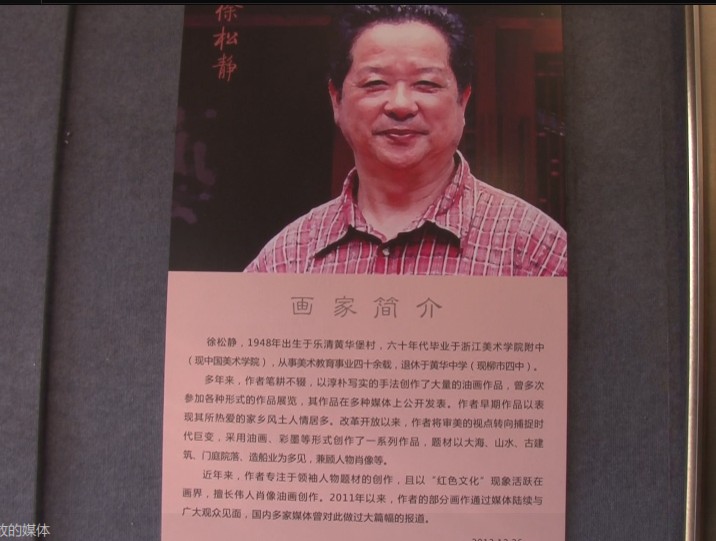 徐松静
画家简介
徐松静，1948年出生于乐清黄华堡村，六十年代毕业于浙江美术学院附中
（现中国美术学院），从事美术教育事业四十余载，退休于黄华中学（现柳市四中）。
多年来，作者笔耕不辍，以淳朴写实的手法创作了大量的油画作品，曾多次
参加各种形式的作品展览，其作品在多种媒体上公开发表。作者早期作品以表
现其所热爱的家乡风土人情居多。改革开放以来，作者将审美的视点转向捕捉时
代巨变，采用油画、彩墨等形式创作了一系列作品，题材以大海、山水、古建
筑、门庭院落、造船业为多见，兼顾人物肖像等。
近年来，作者专注于领袖人物题材的创作，且以“红色文化”现象活跃在
画界，擅长伟人肖像油画创作。2011年以来，作者的部分画作通过媒体陆续与
广大观众见面，国内多家媒体曾对此做过大篇幅的报道。
的媒体